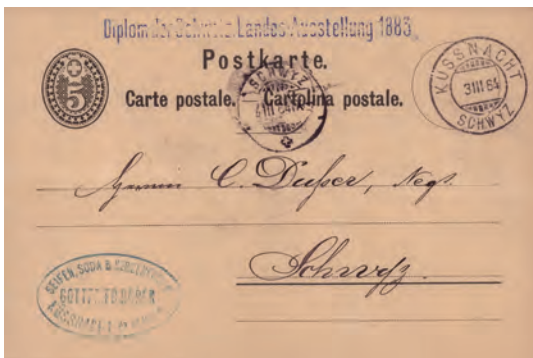 Diplom der Schweiz. Landes-Ausstellung 1883
Postkarte.
Carte postale. Cartolina postale.
5
SCHWYZ
KÜSSNACHT
3 III 84
SCHWYZ
Herrn C. Negt.
Schwyz.
SEIFEN, SODA &